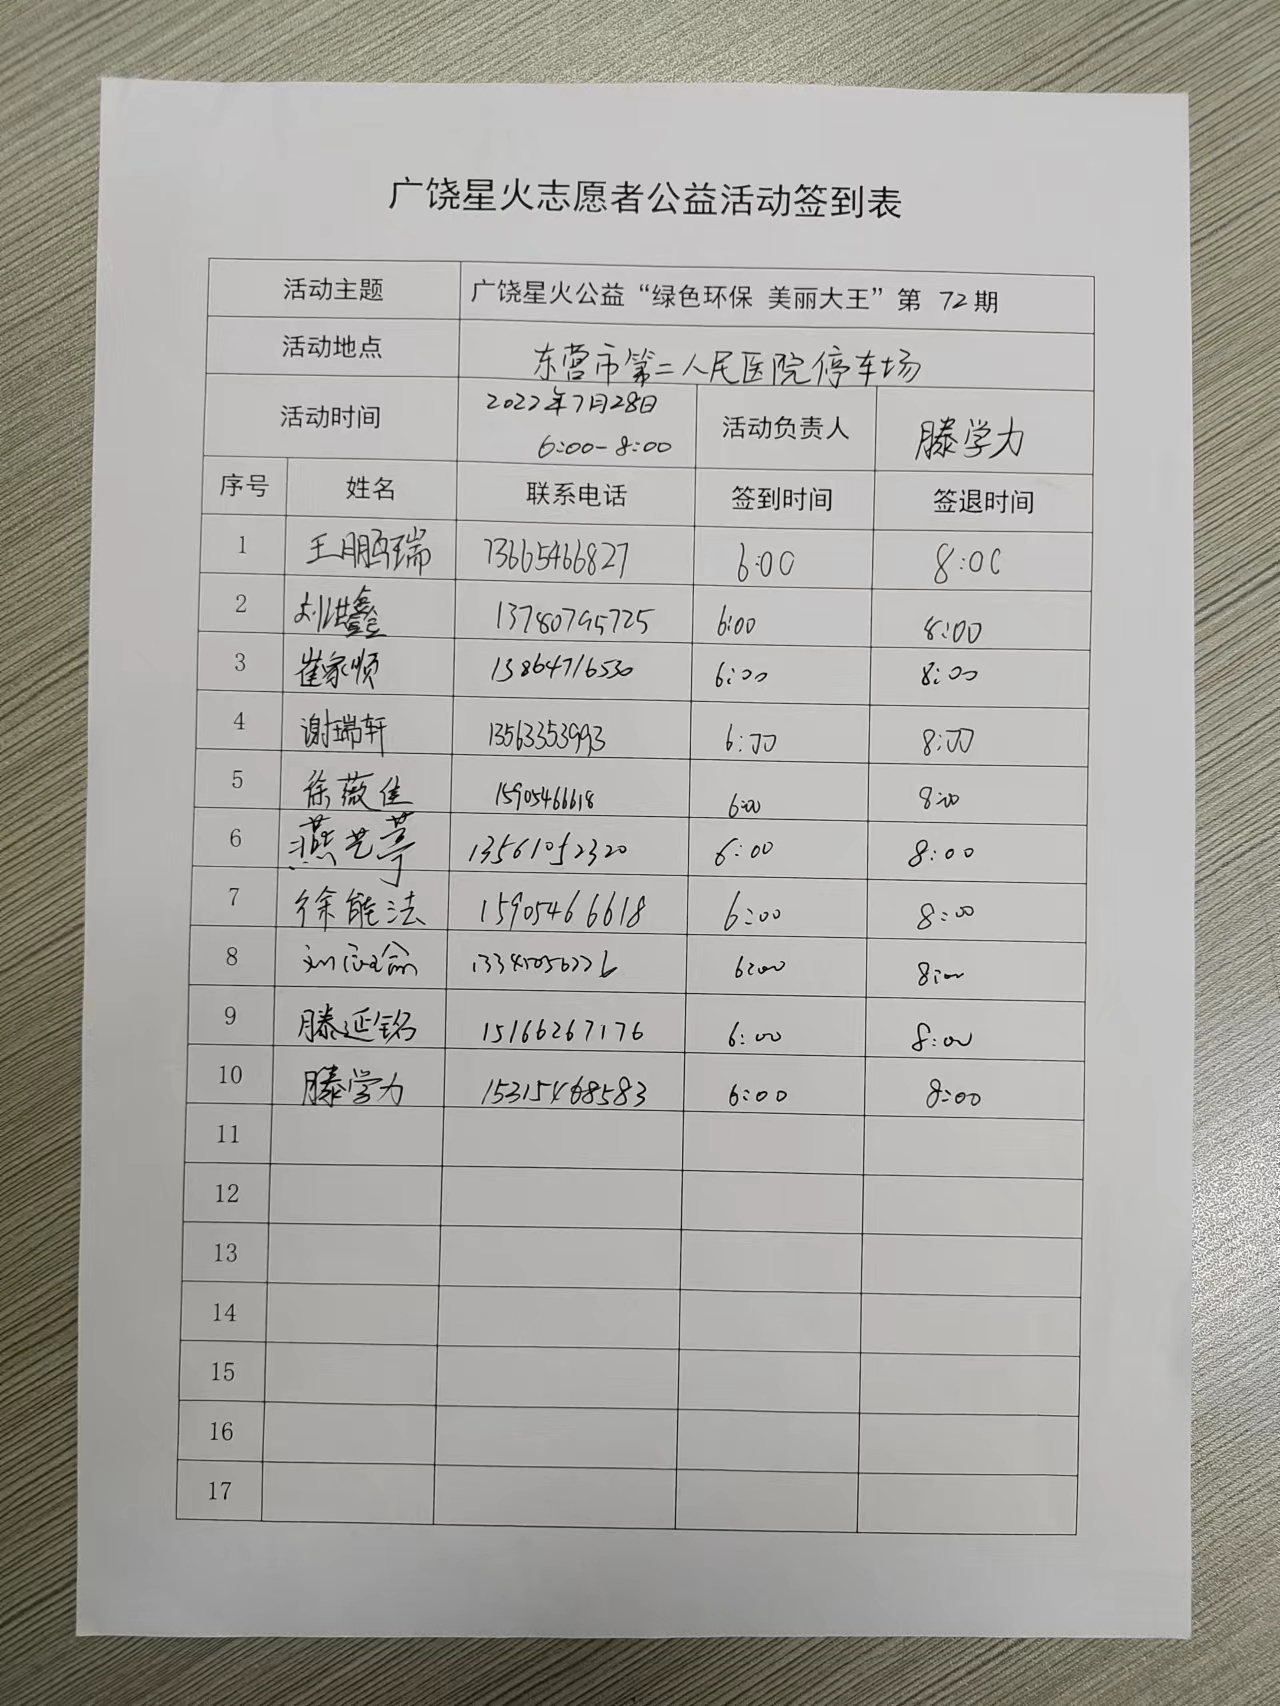 广饶星火志愿者公益活动签到表
活动主题 广饶星火公益“绿色环保 美丽大王”第 72期
活动地点 东营市第二人民医院停车场
活动时间 2022年7月28日 6:00-8:00 活动负责人 滕学力
序号 姓名 联系电话 签到时间 签退时间
1 王鹏瑞 13665466827 6:00 8:00
2 刘洪鑫 13780795725 6:00 8:00
3 崔家顺 13864716530 6:00 8:00
4 谢瑞轩 13563353993 6:00 8:00
5 徐薇佳 15905466618 6:00 8:00
6 燕艺葶 13561052320 6:00 8:00
7 徐能法 15905466618 6:00 8:00
8 6:00 8:00
9 滕延铭 15166267176 6:00 8:00
10 滕学力 15315468583 6:00 8:00
11
12
13
14
15
16
17